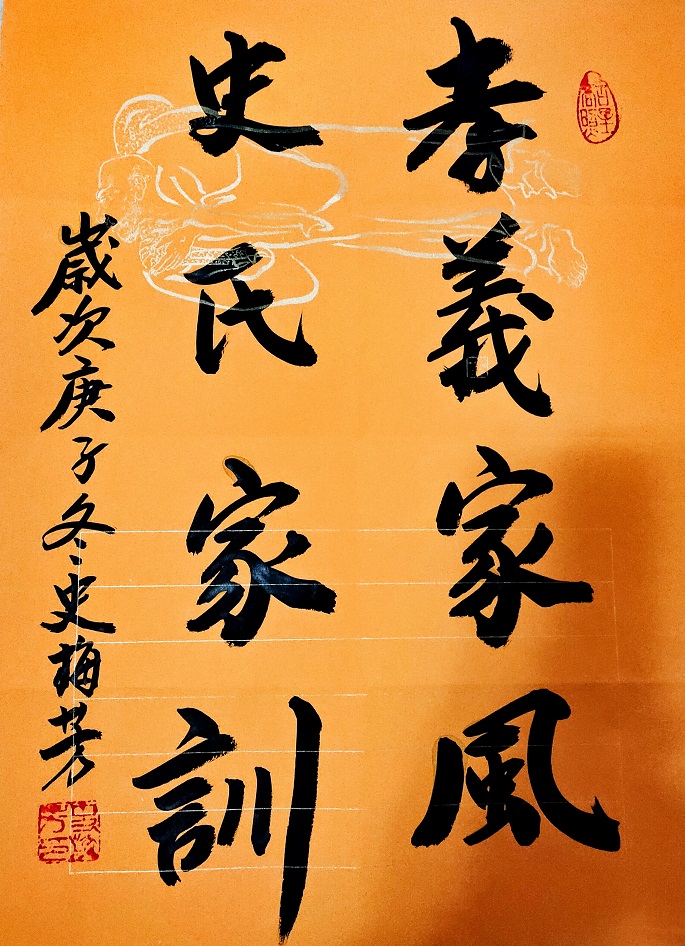 孝義家風
史氏家訓
歲次庚子冬史梅芳